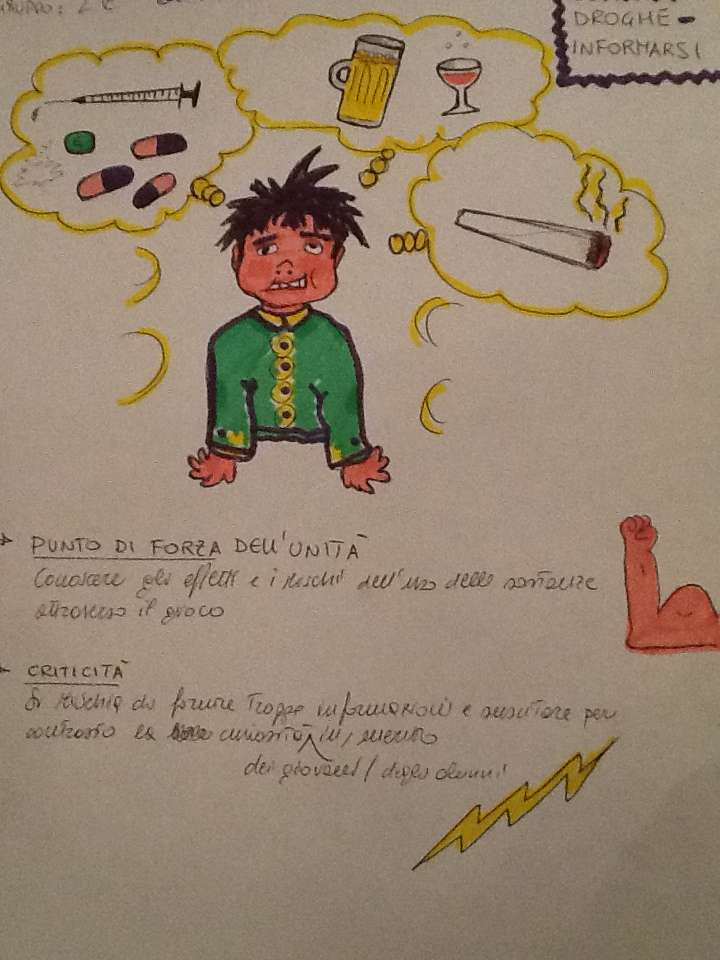 GRUPPO: 2
DROGHE -
INFORMARSI
PUNTO DI FORZA DELL'UNITÀ
Conoscere gli effetti e i rischi dell'uso delle sostanze
attraverso il gioco
CRITICITÀ
Si rischia di fornire troppe informazioni e suscitare per
contrasto la curiosità in merito
dei giovani / degli alunni